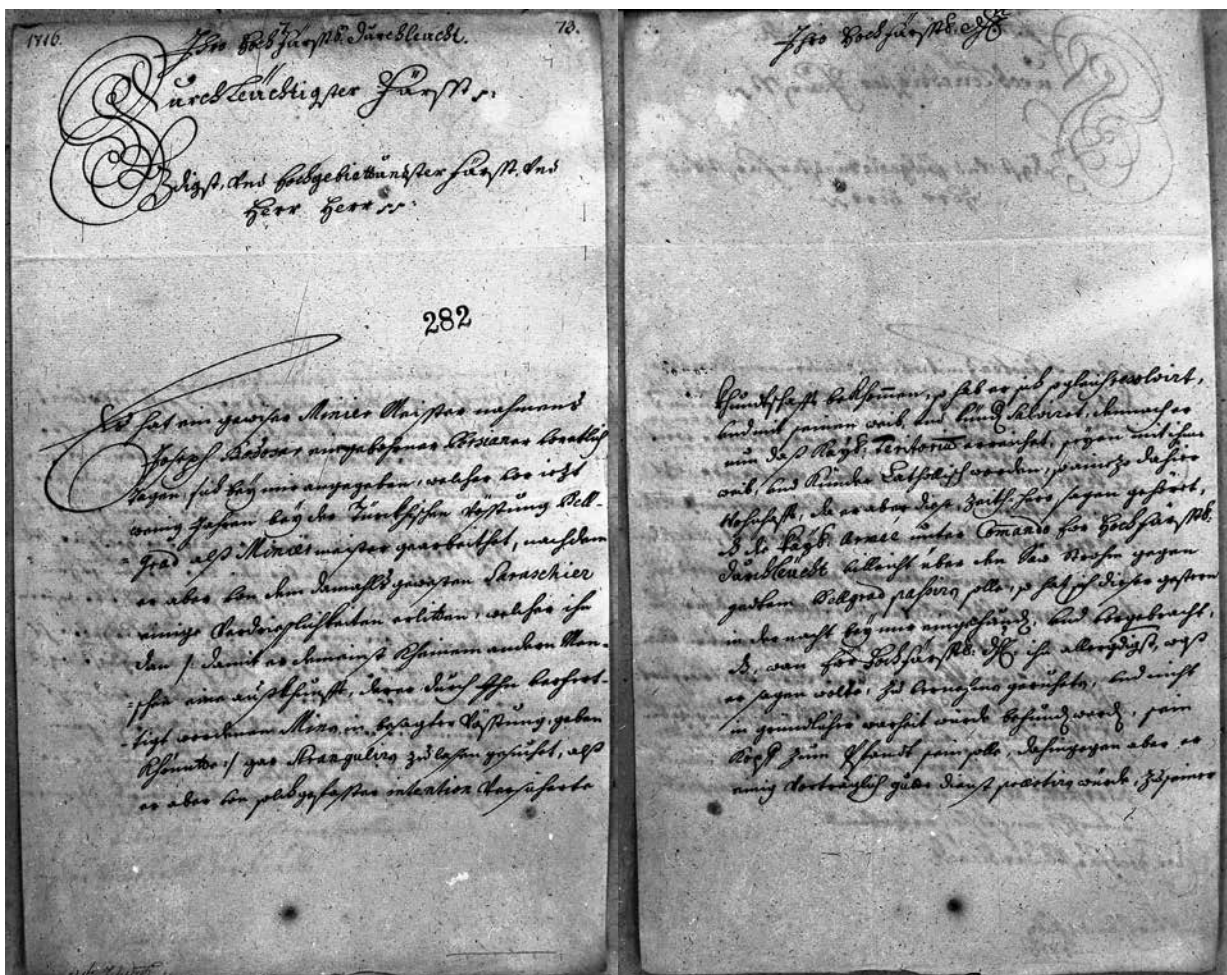 1716.
73.
Ihro Hochfürstl: Durchleücht.
Durchleüchtigster Fürst
gdigst, und hochgebiettündster Fürst, und
Herr Herr
282
Es hat ein gewißer Minier Meister nahmens
Joseph ein gebohrner vor etlich
tagen sich bey mir angegeben, welcher vor ietzt
wenig Jahren bey der Türckhischen Vösstung Bell-
-grad alß Minier meister gearbeithet, nachdem
er aber von dem damahls gewesten Saraschier
einige Verdrieslichkeiten erlitten, welcher ihn
dan /: damit er dereinst kheinem andern Men-
-schen eine außkhunfft, derer durch Ihn verfert-
-tigt wordenen Minen in besagter Vösstung, geben
khönnte :/ gar stranguliren zu laßen gesuchet, alß
er aber von solch gefaster intention versicherte
Ihro Hochfürstl: Dhl:
khundtschafft bekhommen, so hab er sich so gleich resolvirt,
und mit seinem weib, und Kündern salvirt, demnach er
nun daß Kays: Teritorium erreichet, seyen mit ihme
weib, und Künder Catholisch worden, so anietzo dahier
Wohnhafft, da er aber diese Zeith hero sagen gehöret,
daß die Kays: Armée unter Comando Eur Hochfürstl:
Durchleücht villeicht über den Sau Strohm gegen
gedachtem Bellgrad passiren solle, so hat sich dieser gestern
in der nacht bey mir eingefunden, und vorgebracht,
daß, wan Eur Hochfürstl: Dhl: ihn allergdigst, waß
er sagen wolte, zu vernehmen geruheten, und nicht
in gründlicher warheit wurde befunden werden, sein
Kopff zum Pfandt sein solle, dahingegen aber er
einig Vorträglich guete dienst praestiren würde, zu seiner